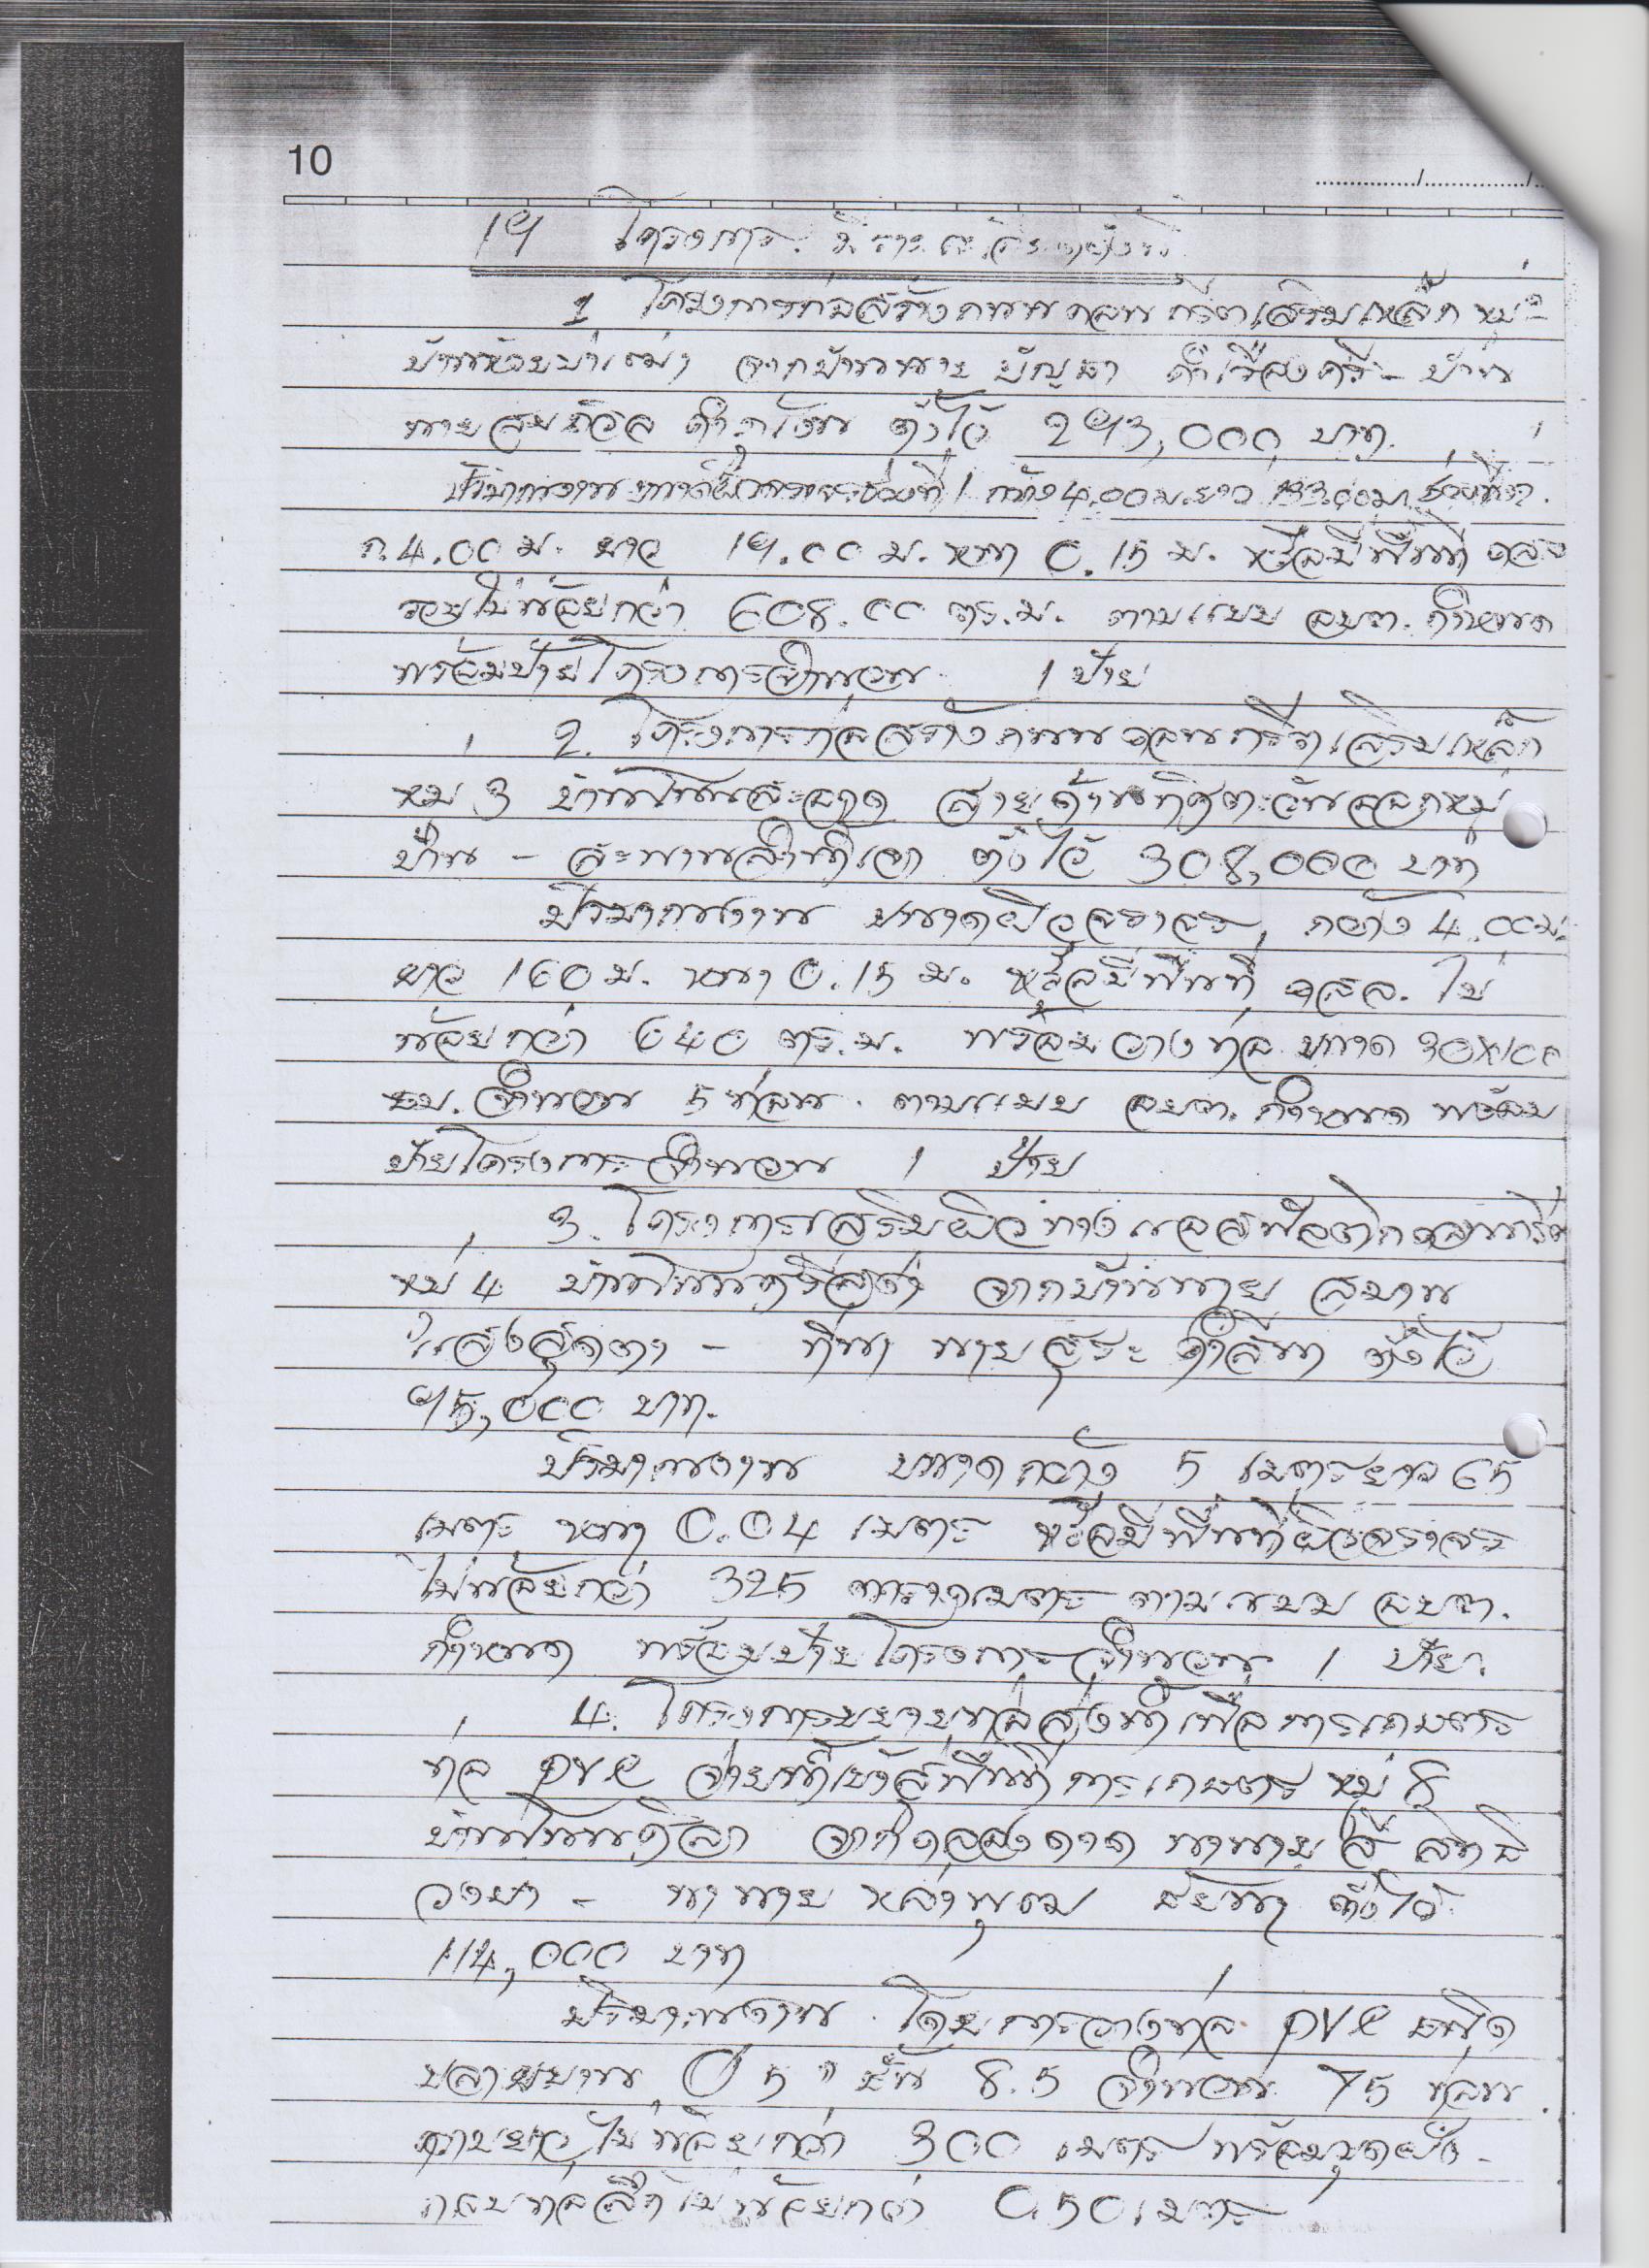 10
โครงการ
1 โครงการก่อสร้างถนนคอนกรีตเสริมเหล็ก หมู่ 2
บ้านห้วย จากบ้านนาย บัญชา - บ้าน
นายสมถวิล ตั้งไว้ 293,000 บาท.
ปริมาณงาน ขนาดผิวจราจรช่วงที่ 1 กว้าง 4.00 ม. ยาว 133.00 ม. ช่วงที่ 2.
ก. 4.00 ม. ยาว 19.00 ม. หนา 0.15 ม. หรือมีพื้นที่ คสล
รวมไม่น้อยกว่า 608.00 ตร.ม. ตามแบบ อบต. กำหนด
พร้อมป้ายโครงการจำนวน 1 ป้าย
2. โครงการก่อสร้างถนนคอนกรีตเสริมเหล็ก
หมู่ 3 บ้านโนนสะอาด สายด้านทิศตะวันออกหมู่
บ้าน - ตั้งไว้ 308,000 บาท
ปริมาณงาน ขนาดผิวจราจร กว้าง 4.00 ม.
ยาว 160 ม. หนา 0.15 ม. หรือมีพื้นที่ คสล. ไม่
น้อยกว่า 640 ตร.ม. พร้อมวางท่อ ขนาด 30x100
ซม. จำนวน 5 ท่อน. ตามแบบ อบต. กำหนด พร้อม
ป้ายโครงการจำนวน 1 ป้าย
3. โครงการเสริมผิวทางแอสฟัลต์ติกคอนกรีต
หมู่ 4 จากบ้านนาย สมาน
- ที่นา นายสุระ ตั้งไว้
95,000 บาท.
ปริมาณงาน ขนาดกว้าง 5 เมตร ยาว 65
เมตร หนา 0.04 เมตร หรือมีพื้นที่ผิวจราจร
ไม่น้อยกว่า 325 ตารางเมตร ตามแบบ อบต.
กำหนด พร้อมป้ายโครงการจำนวน 1 ป้าย.
4. โครงการขยายท่อส่งน้ำเพื่อการเกษตร
ท่อ PVC จ่ายน้ำเข้าสู่พื้นที่การเกษตร หมู่ 8
จากคลองดาด นานาย
- นานาย ตั้งไว้
114,000 บาท
ปริมาณงาน โดยการวางท่อ PVC ชนิด
ปลายบาน Ø 5 " ชั้น 8.5 จำนวน 75 ท่อน
ความยาวไม่น้อยกว่า 300 เมตร พร้อมขุดฝัง
กลบท่อลึกไม่น้อยกว่า 0.50 เมตร